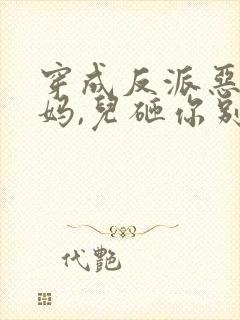 穿成反派惡
妈,兒砸你别
代艷